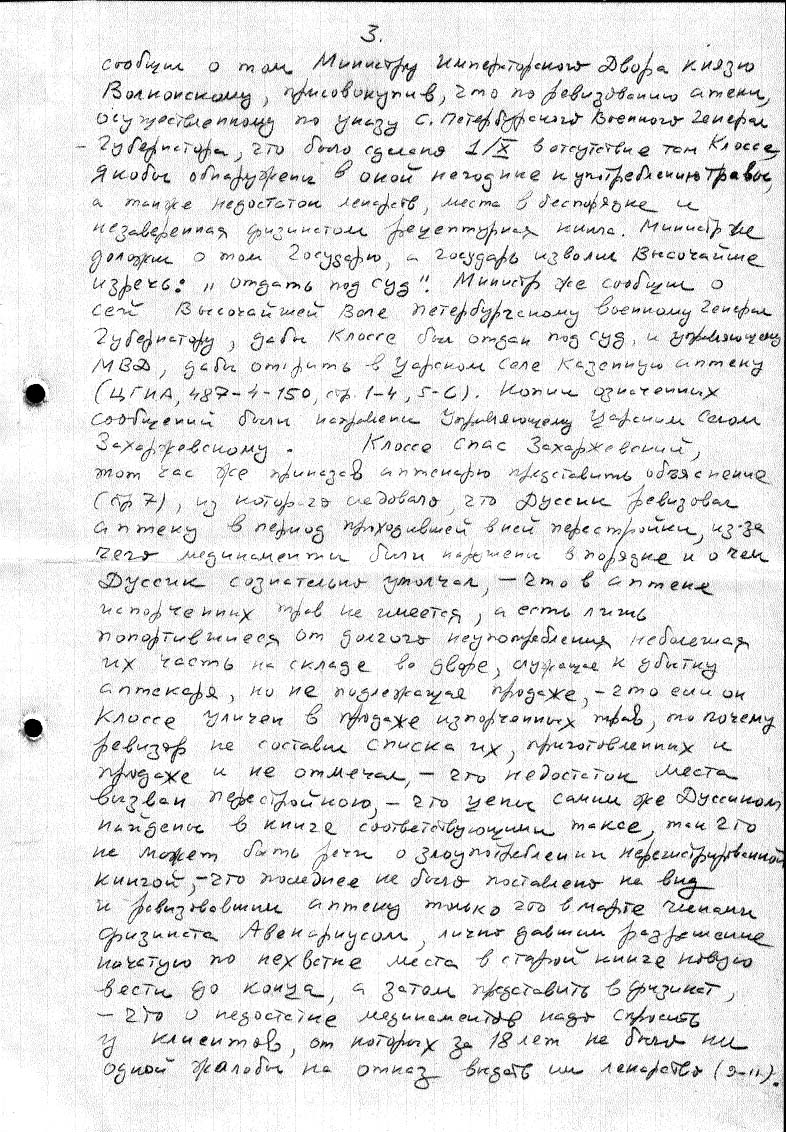 3.
сообщил о том Министру Императорского Двора князю
Волконскому, присовокупив, что по ревизованию аптеки,
осуществленному по указу С. Петербургского Военного Генерал
- Губернатора, что было сделано 1/X в отсутствие там Клоссе,
якобы обнаружены в оной негодные к употреблению травы,
а также недостаток лекарств, места в беспорядке и
незаверенная физикатом рецептурная книга. Министр же
доложил о том Государю, а государь изволил Высочайше
изречь: „отдать под суд". Министр же сообщил о
сей Высочайшей Воле Петербургскому военному Генерал
Губернатору, дабы Клоссе был отдан под суд, и управляющему
МВД, дабы открыть в Царском Селе казенную аптеку
(ЦГИА, 487-4-150, стр. 1-4, 5-6). Копии означенных
сообщений были направлены Управляющему Царским Селом
Захаржевскому. Клоссе спас Захаржевский,
тот час же приказав аптекарю представить объяснение
(стр 7), из которого следовало, что Дуссик ревизовал
аптеку в период проходившей в ней перестройки, из-за
чего медикаменты были нарушены в порядке и о чем
Дуссик сознательно умолчал, - что в аптеке
испорченных трав не имеется, а есть лишь
попортившиеся от долгого неупотребления небольшая
их часть на складе во дворе, служащая к убытку
аптекаря, но не подлежащая продаже, - что если он
Клоссе уличен в продаже испорченных трав, то почему
ревизор не составил списка их, приготовленных к
продаже и не отмечал, - что недостаток места
вызван перестройкою, - что цены самим же Дуссиком
найдены в книге соответствующими таксе, так что
не может быть речи о злоупотреблении нерегистрированной
книгой, - что последнее не было поставлено на вид
и ревизовавшим аптеку только что в марте членами
физиката Авенариусом, лично давшим разрешение
начатую по нехватке места в старой книге новую
вести до конца, а затем представить в физикат,
- что о недостатке медикаментов надо спросить
у клиентов, от которых за 18 лет не было ни
одной жалобы на отказ выдать им лекарство (9-11).